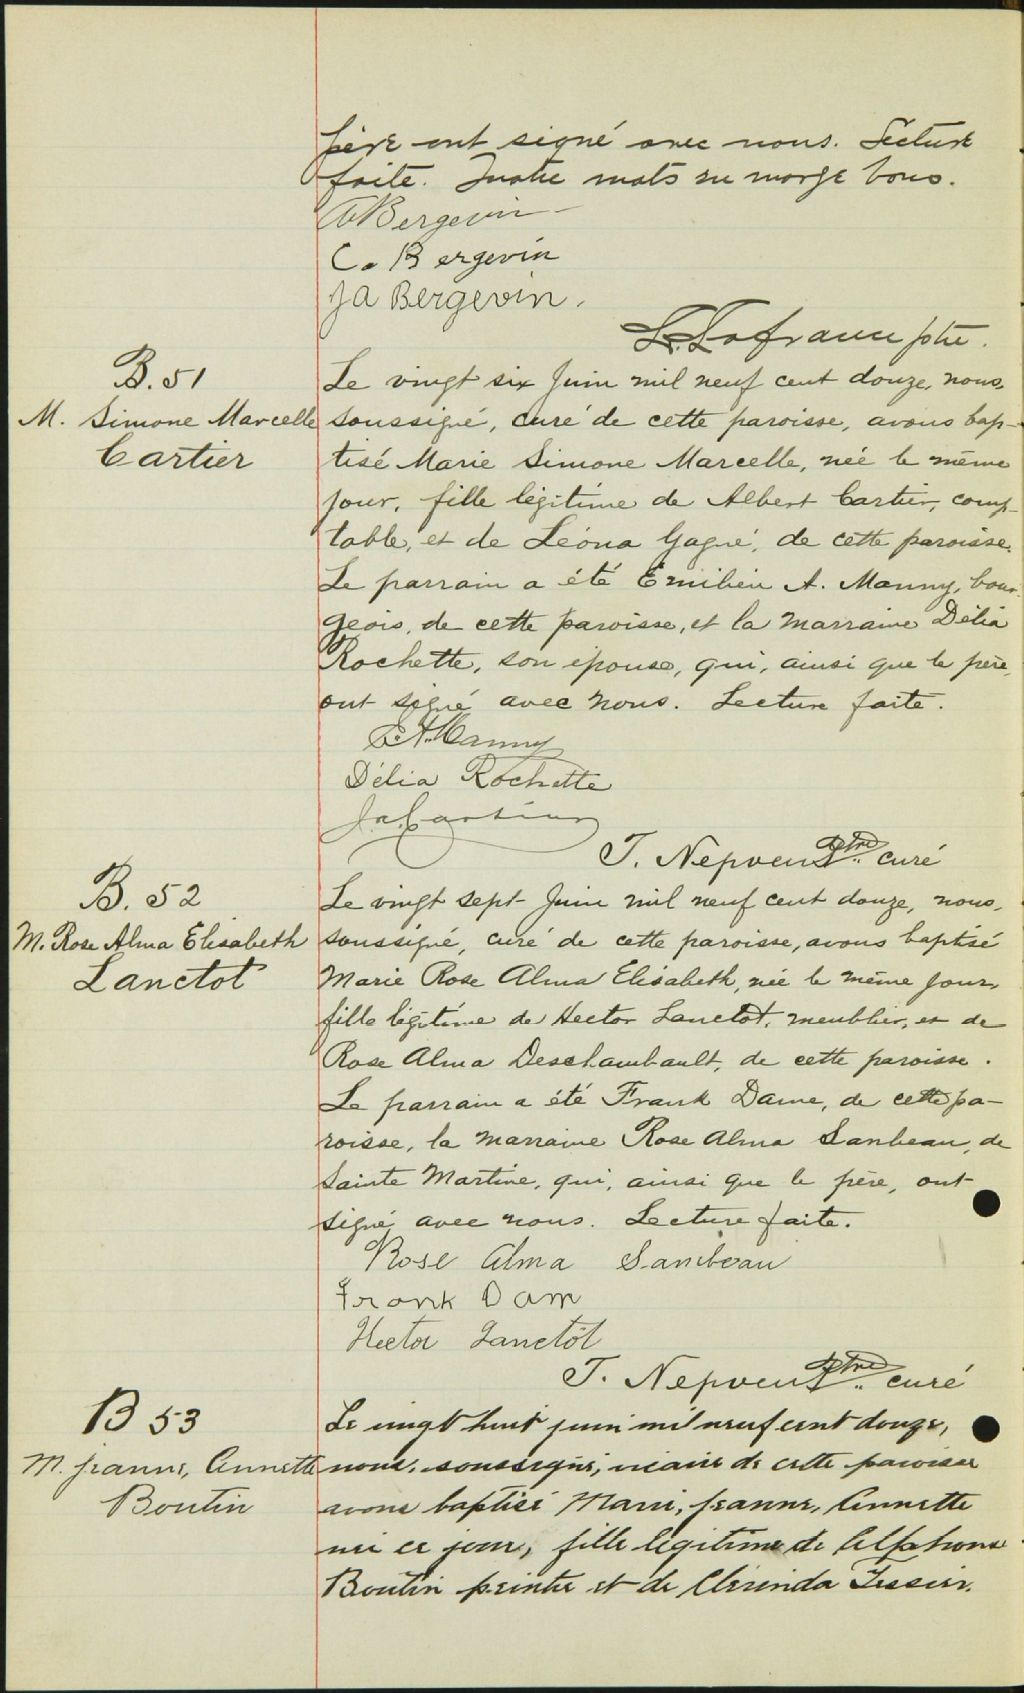 père ont signé avec nous. Lecture
faite. Quatre mots en marge bons.
A Bergevin
C. Bergevin
JA Bergevin.
L. Lafrance ptre.
B. 51
M. Simone Marcelle
Cartier
Le vingt six Juin mil neuf cent douze, nous,
soussigné, curé de cette paroisse, avons bap-
tisé Marie Simone Marcelle, née le même
jour, fille légitime de Albert Cartier, comp-
table, et de Léona Gagné, de cette paroisse.
Le parrain a été Emilien A. Manny, bour-
geois, de cette paroisse, et la marraine Délia
Rochette, son épouse, qui, ainsi que le père,
ont signé avec nous. Lecture faite.
E.A. Manny
Délia Rochette
Cartier
T. Nepveu Ptre curé
B. 52
M. Rose Alma Elisabeth
Lanctot
Le vingt sept Juin mil neuf cent douze, nous,
soussigné, curé de cette paroisse, avons baptisé
Marie Rose Alma Elisabeth, née le même jour,
fille légitime de Hector Lanctot, meublier, et de
Rose Alma Deschambault, de cette paroisse.
Le parrain a été Frank Dame, de cette pa-
roisse, la marraine Rose Alma Sanbeau, de
Sainte Martine, qui, ainsi que le père, ont
signé avec nous. Lecture faite.
Rose Alma Sambeau
Frank Dam
Hector Lanctôt
T. Nepveu Ptre curé
B 53
M. Jeanne, Annette
Boutin
Le vingt huit juin mil neuf cent douze,
nous, soussigné, vicaire de cette paroisse
avons baptisé Marie, Jeanne, Annette
née ce jour, fille légitime de Alphonse
Boutin peintre et de Clerinda Tessier.